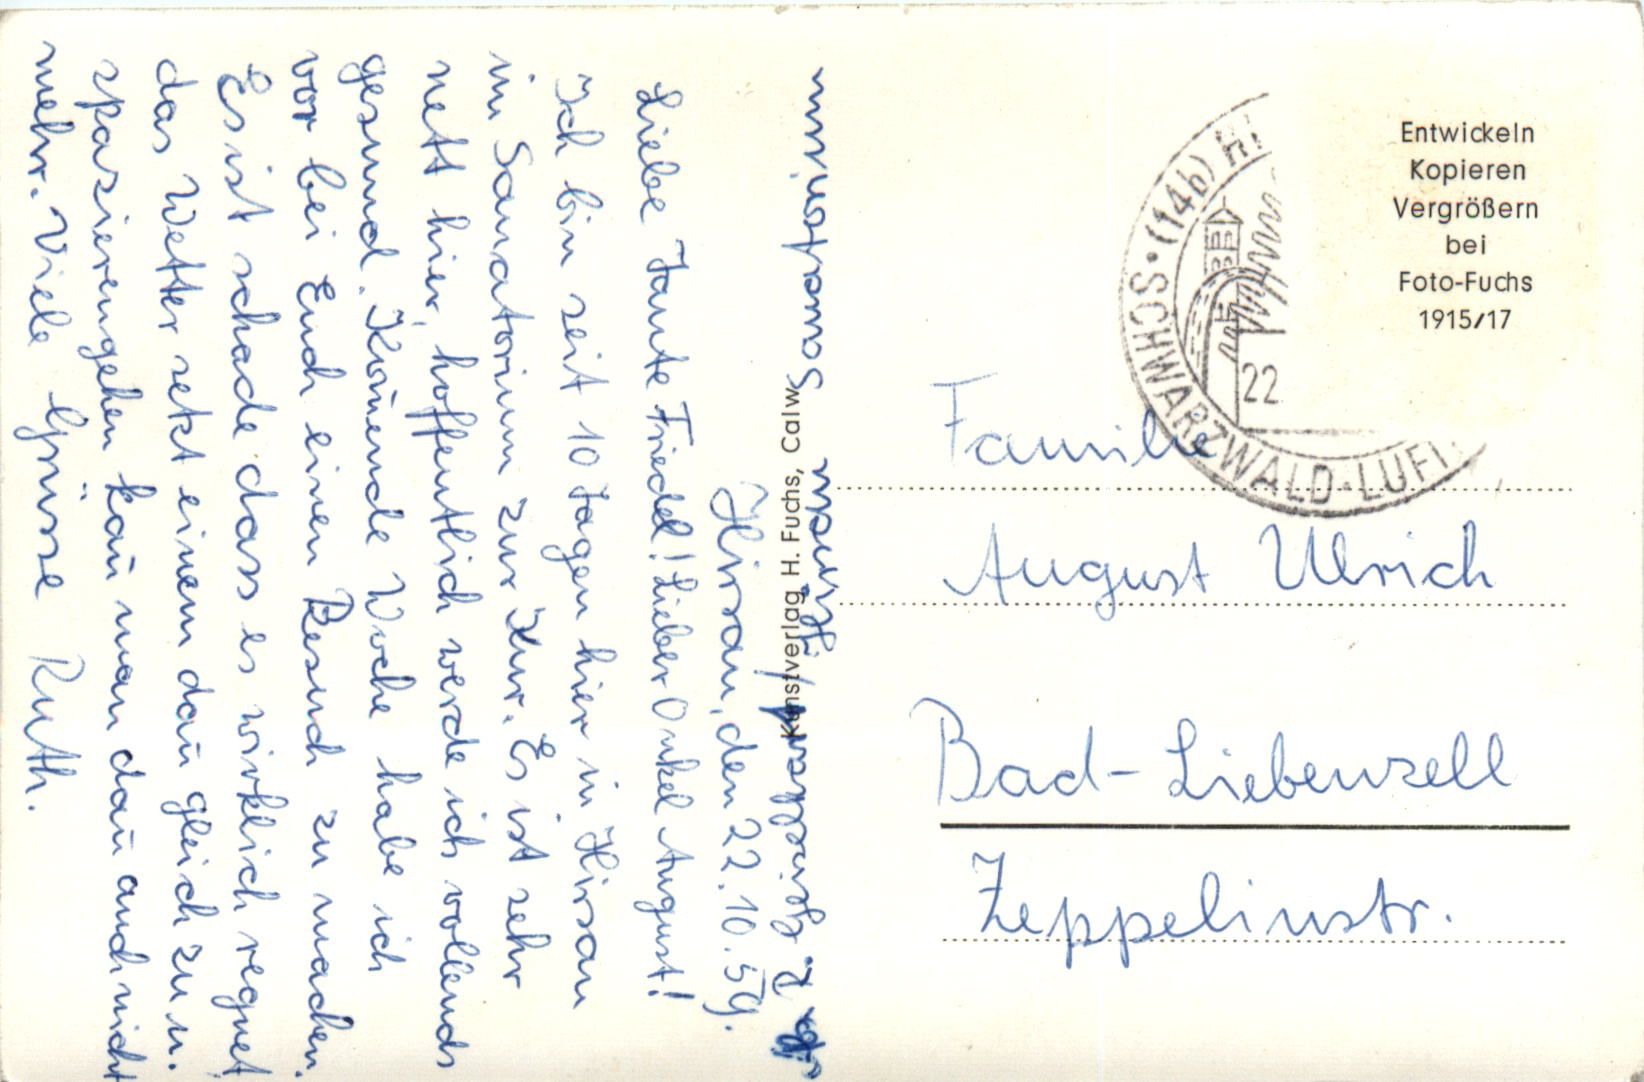 R. Griesshaber, Hirsau Sanatorium
Hirsau, den 22.10.59.
Liebe Tante Friedel! Lieber Onkel August!
Ich bin seit 10 Tagen hier in Hirsau
im Sanatorium zur Kur. Es ist sehr
nett hier, hoffentlich werde ich vollends
gesund. Kom̄ende Woche habe ich
vor bei Euch einen Besuch zu machen.
Es ist schade dass es wirklich regnet
das Wetter setzt einem dan̄ gleich zu u.
spazierengehen kan̄ man dan̄ auch nicht
mehr. Viele Grüsse Ruth.
Kunstverlag H. Fuchs, Calw
SCHWARZWALD · LUFT
(14b) HI
22
Entwickeln
Kopieren
Vergrößern
bei
Foto-Fuchs
1915/17
Familie
August Ulrich
Bad-Liebenzell
Zeppelinstr.